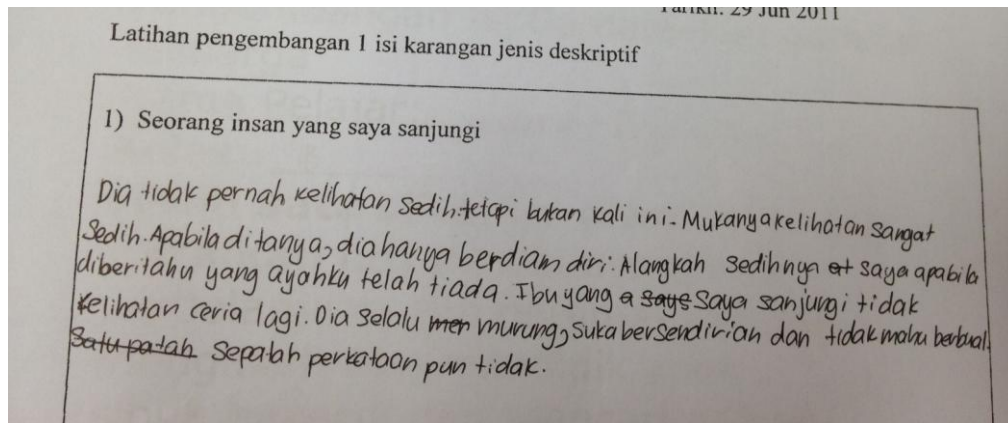 Tarikh: 29 Jun 2011
Latihan pengembangan 1 isi karangan jenis deskriptif
1) Seorang insan yang saya sanjungi
Dia tidak pernah kelihatan sedih.tetapi bukan kali ini. Mukanya kelihatan sangat
sedih. Apabila ditanya, dia hanya berdiam diri. Alangkah sedihnya at saya apabila
diberitahu yang ayahku telah tiada. Ibu yang a saya saya sanjungi tidak
kelihatan ceria lagi. Dia selalu men murung, suka bersendirian dan tidak mahu berbual.
Satu patah sepatah perkataan pun tidak.